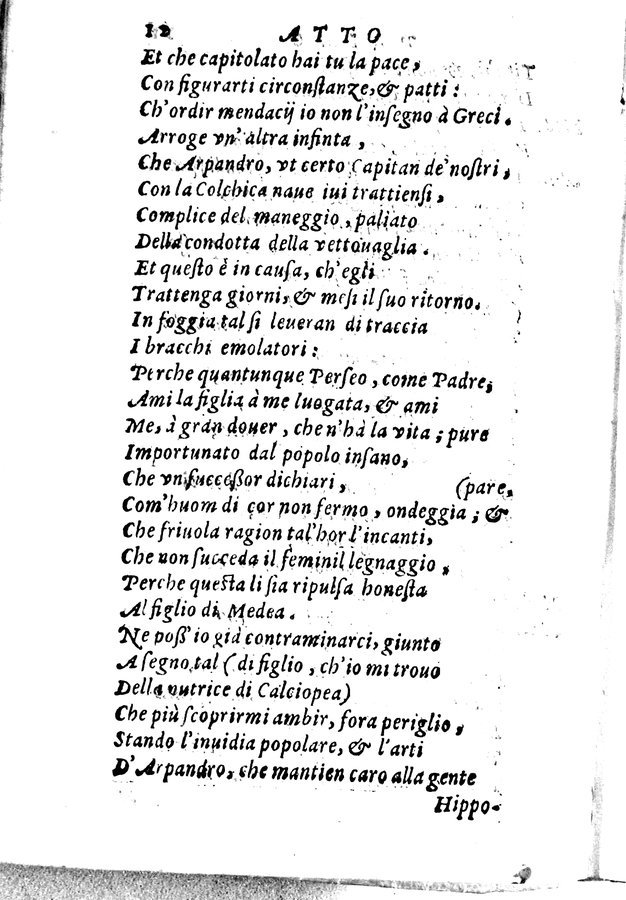 12 ATTO
Et che capitolato hai tu la pace,
Con figurarti circonſtanze, & patti:
Ch'ordir mendacij io non l'inſegno à Greci.
Arroge vn'altra infinta,
Che Arpandro, vt certo Capitan de'noſtri,
Con la Colchica naue iui trattienſi,
Complice del maneggio, paliato
Della condotta della vettouaglia.
Et queſto è in cauſa, ch'egli
Trattenga giorni, & meſi il ſuo ritorno.
In foggia tal ſi leueran di traccia
I bracchi emolatori:
Perche quantunque Perſeo, come Padre,
Ami la figlia à me luogata, & ami
Me, à gran douer, che n'hà la vita; pure
Importunato dal popolo inſano,
Che vn ſucceſſor dichiari, (pare,
Com'huom di cor non fermo, ondeggia; &
Che friuola ragion tal'hor l'incanti,
Che non ſucceda il feminil legnaggio,
Perche queſta li ſia ripulſa honeſta
Al figlio di Medea.
Ne poſſ'io già contraminarci, giunto
A ſegno tal (di figlio, ch'io mi trouo
Della nutrice di Calciopea)
Che più ſcoprirmi ambir, fora periglio,
Stando l'inuidia popolare, & l'arti
D'Arpandro, che mantien caro alla gente
Hippo-